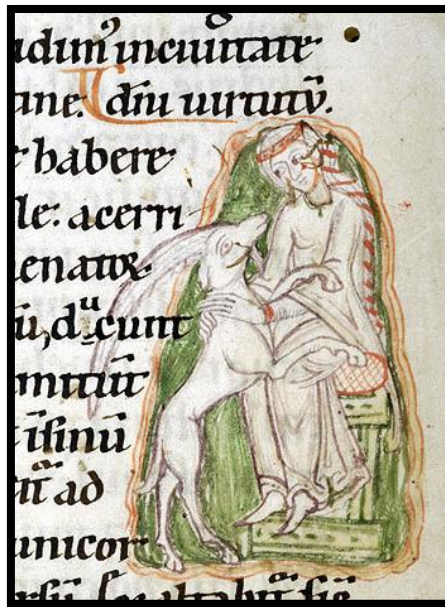 adim' inciuitate
ane. diu uirtutū.
habere
le: acerri
enator
ū, ducunt
mittūt
īsinū
ad
unicor